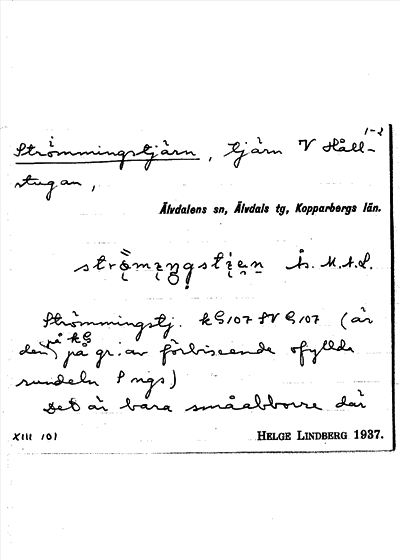 1-2
Strömmingstjärn, tjärn V Håll-
stugan,
Älvdalens sn, Älvdals tg, Kopparbergs län.
Å. M.A.L.
Strömmingstj. kG107 SV G107 (är
på kG
den på gr. av förbiseende ofyllde
rundeln S ngs)
Det är bara småabborre där
XIII 101
HELGE LINDBERG 1937.